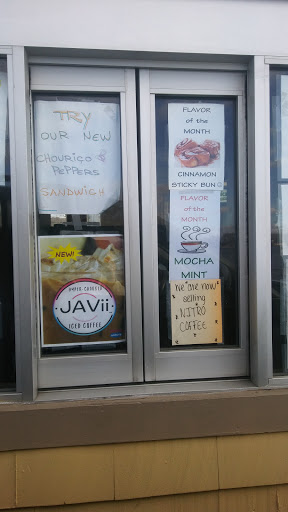 TRY
OUR NEW
CHOURIÇO &
PEPPERS
SANDWICH
NEW!
HYPER CHARGED
JAVii
ICED COFFEE
FLAVOR
of the
MONTH
CINNAMON
STICKY BUN
FLAVOR
of the
MONTH
MOCHA
MINT
We are now
selling
NITRO
COFFEE